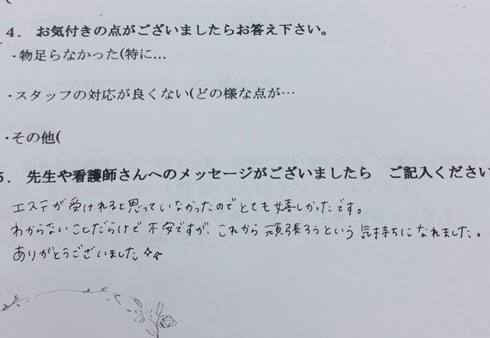 4. お気付きの点がございましたらお答え下さい。
・物足らなかった(特に…
・スタッフの対応が良くない(どの様な点が…
・その他(
5. 先生や看護師さんへのメッセージがございましたら ご記入ください
エステが受けれると思っていなかったのでとても嬉しかったです。
わからないことだらけで不安ですが、これから頑張ろうという気持ちになれました。
ありがとうございました